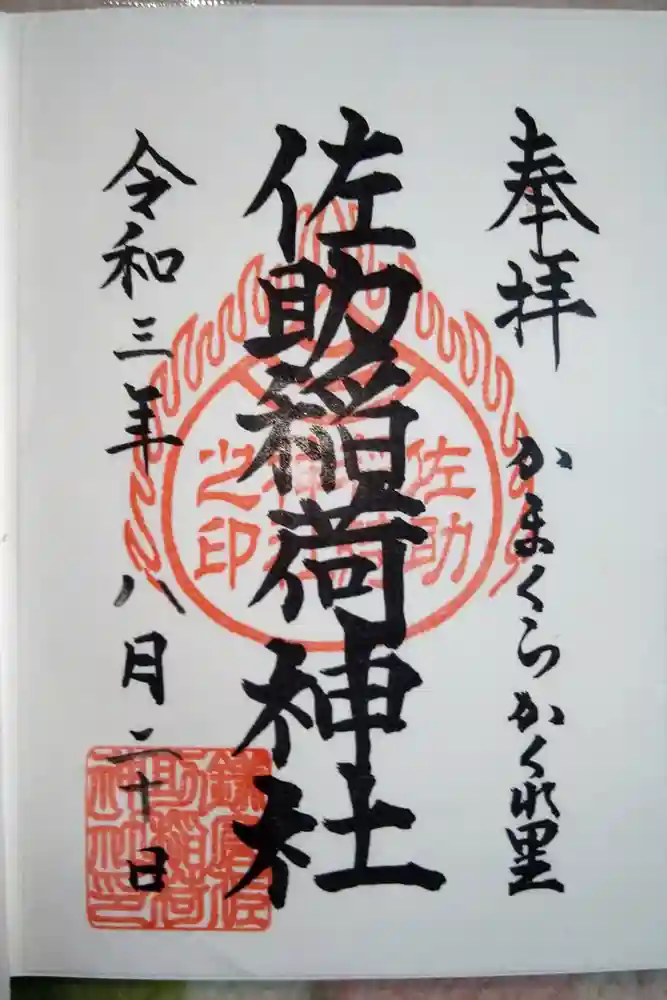 奉拝
かまくらかくれ里
佐助稲荷神社
令和三年 八月二十日
佐助稲荷神社之印
鎌倉佐助稲荷神社印